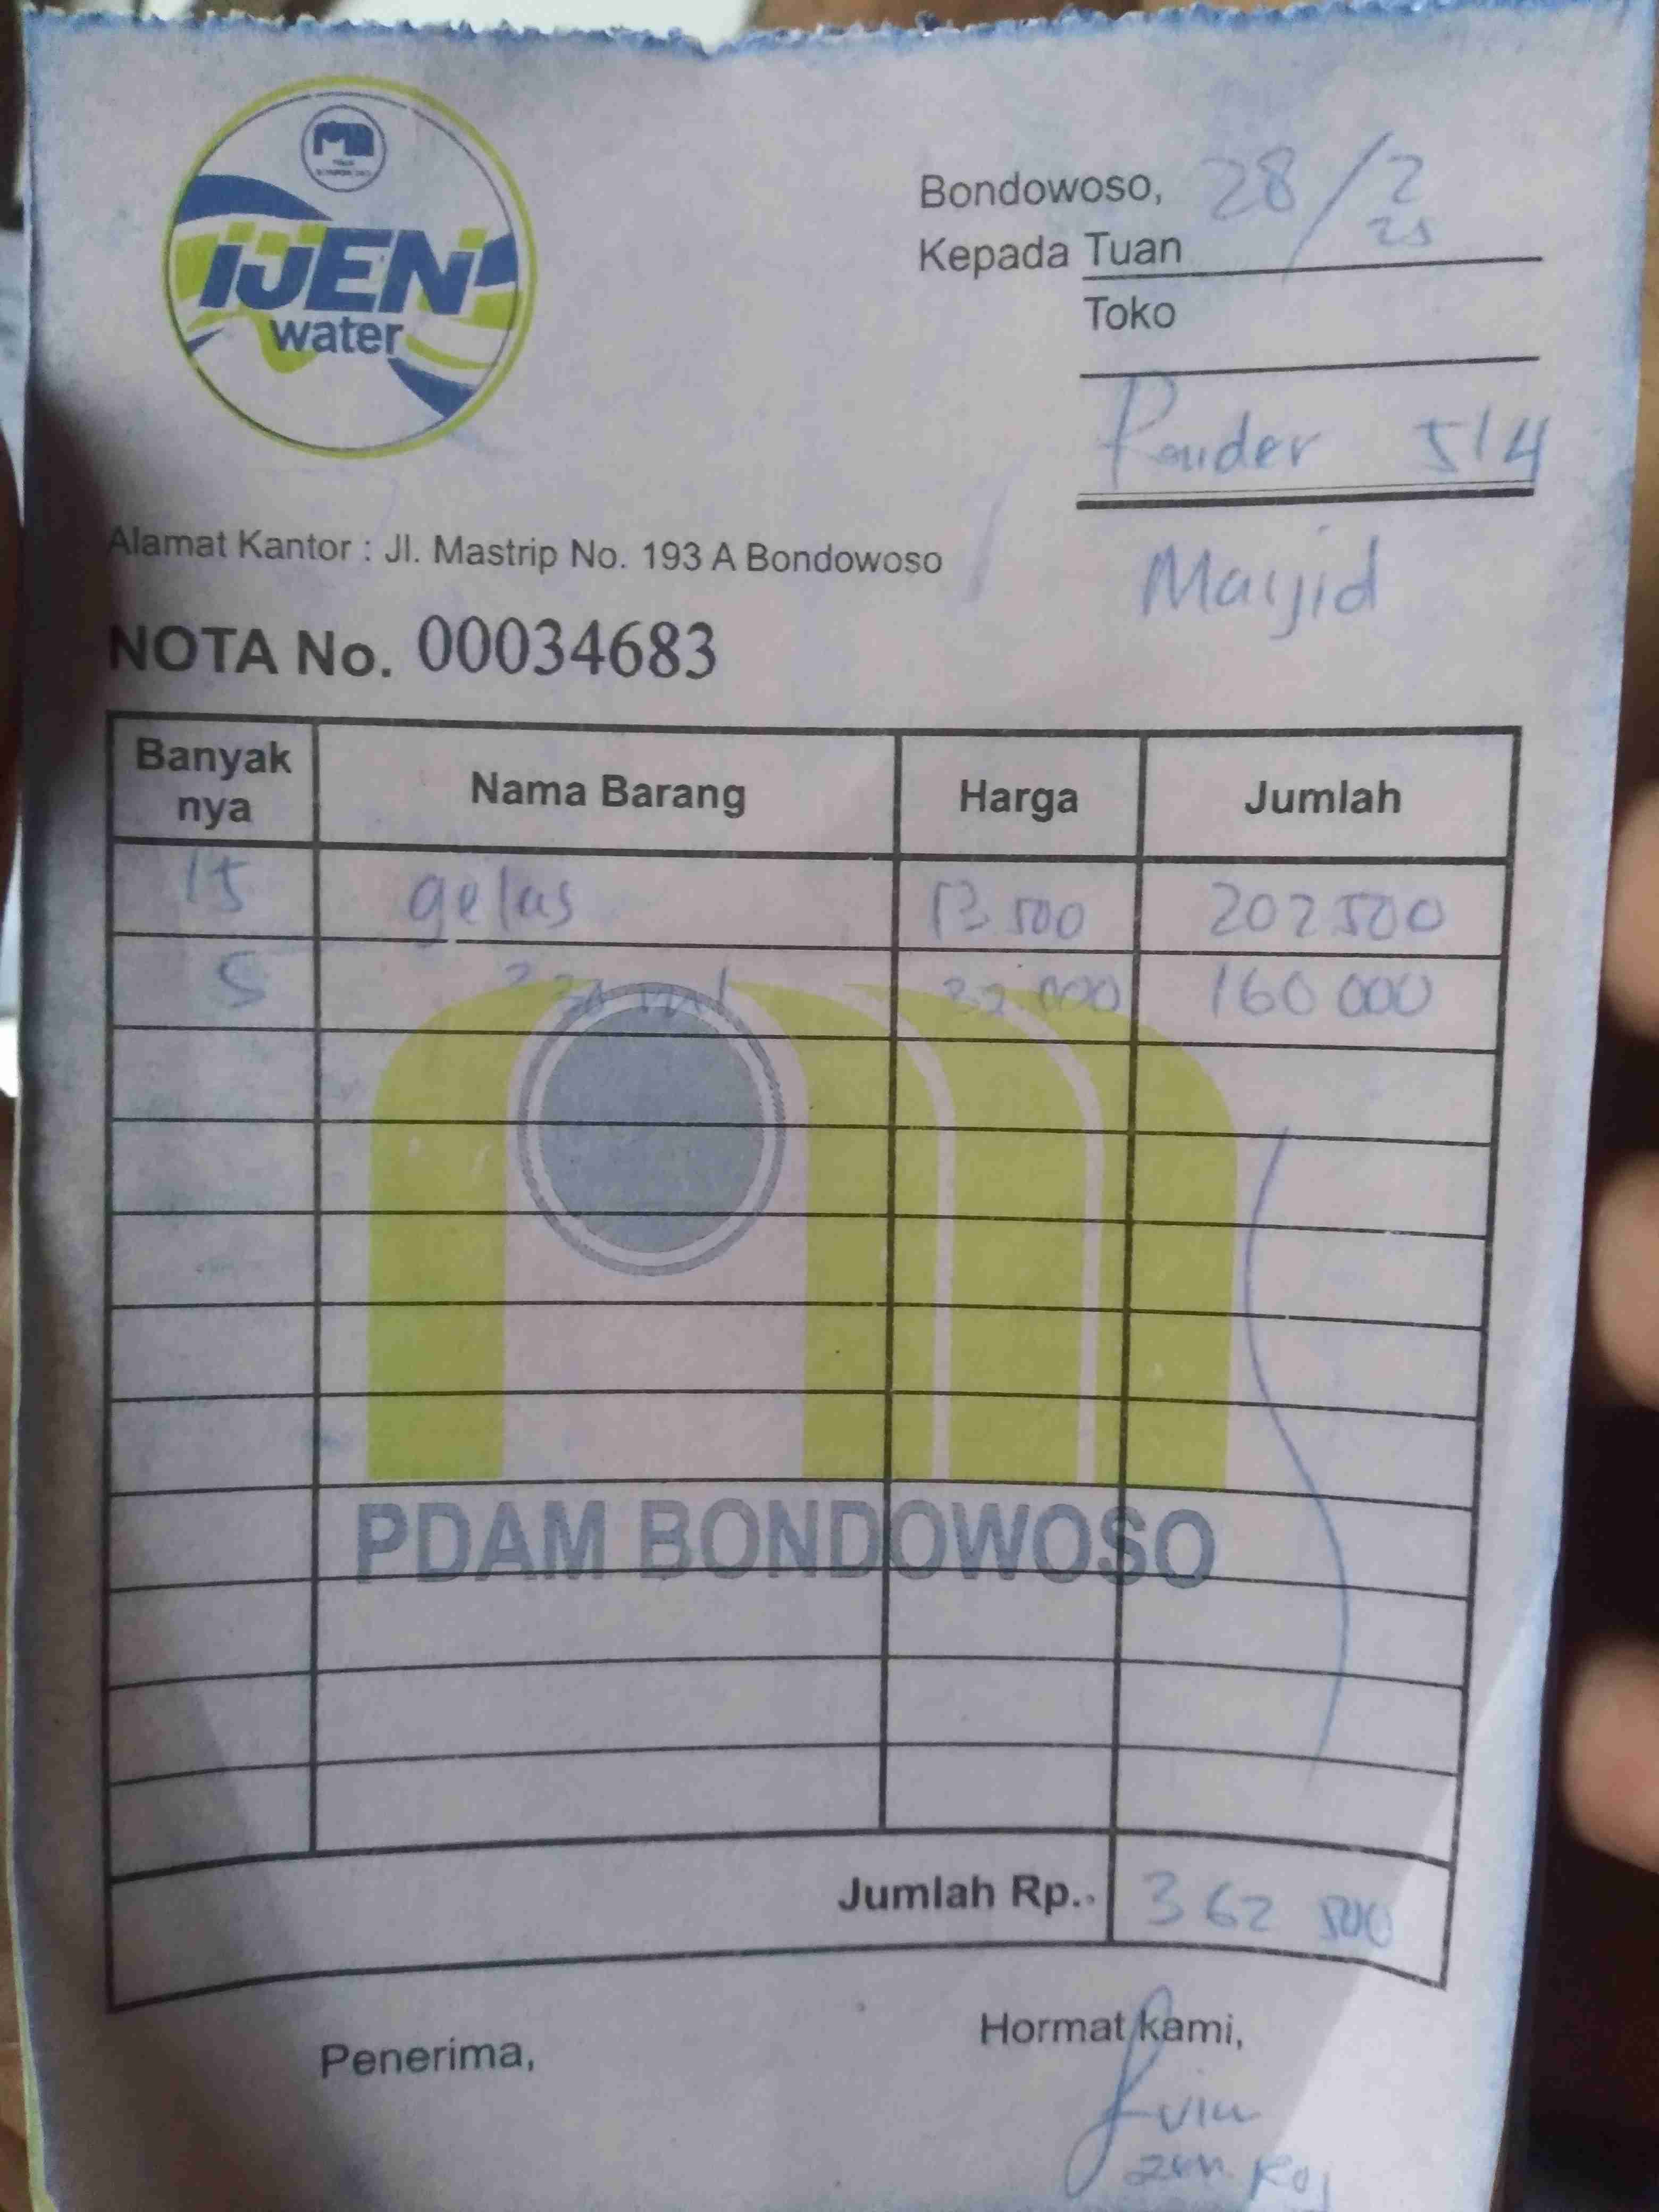 IJEN
water
Bondowoso, 28/2
25
Kepada Tuan
Toko
514
Masjid
Alamat Kantor : Jl. Mastrip No. 193 A Bondowoso
NOTA No. 00034683
Banyak nya Nama Barang Harga Jumlah
15 gelas 13.500 202 500
5 330 ml 32.000 160 000
PDAM BONDOWOSO
Jumlah Rp.. 362 500
Penerima,
Hormat kami,